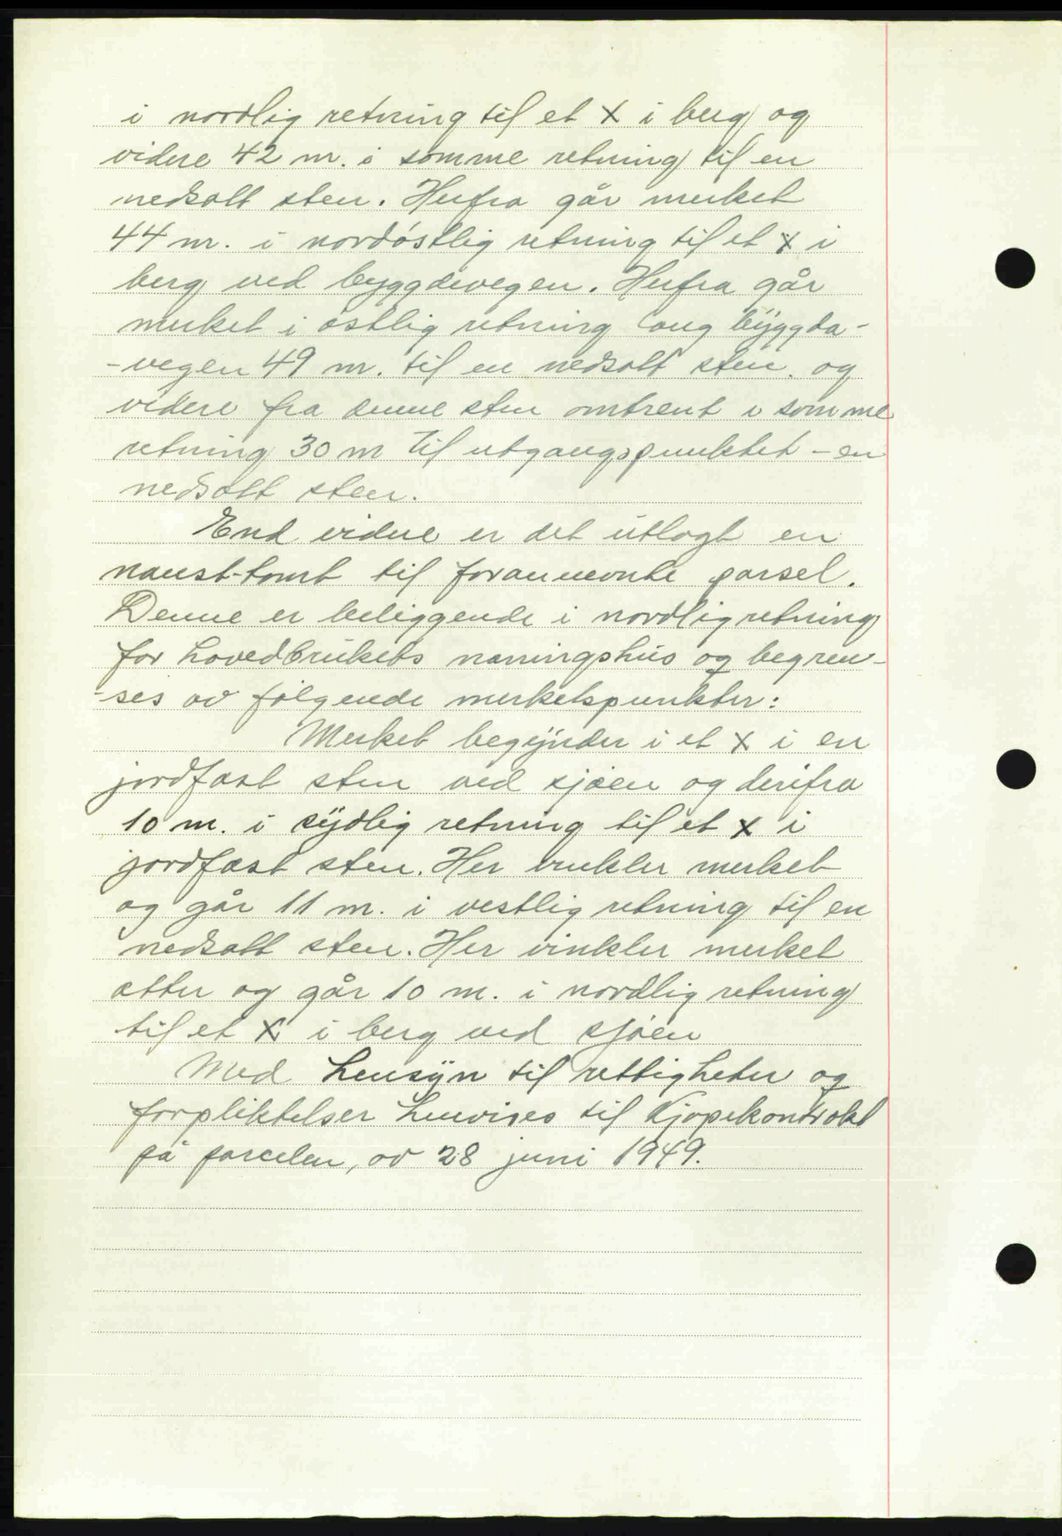 i nordlig retning til et X i berg og
videre 42 m. i samme retning til en
nedsatt sten. Herfra går merket
44 m. i nordøstlig retning til et X i
berg ved byggdevegen. Herfra går
merket i østlig retning lang byggda-
-vegen 49 m. til en nedsatt sten. og
videre fra denne sten omtrent i samme
retning 30 m til utgangspunktet - en
nedsatt sten.
End videre er det utlagt en
naust-tomt til forannevnte parsel.
Denne er beliggende i nordlig retning
for hovedbrukets våningshus og begren-
-ses av følgende merkelspunkter:
Merket begynder i et X i en
jordfast sten ved sjøen og derifra
10 m. i sydlig retning til et X i
jordfast sten. Her vinkler merket
og går 11 m. i vestlig retning til en
nedsatt sten. Her vinkler merket
atter og går 10 m. i nordlig retning
til et X i berg ved sjøen
Med hensyn til rettigheter og
forpliktelser henvises til Kjøpekontrakt
på parcelen, av 28 juni 1949.